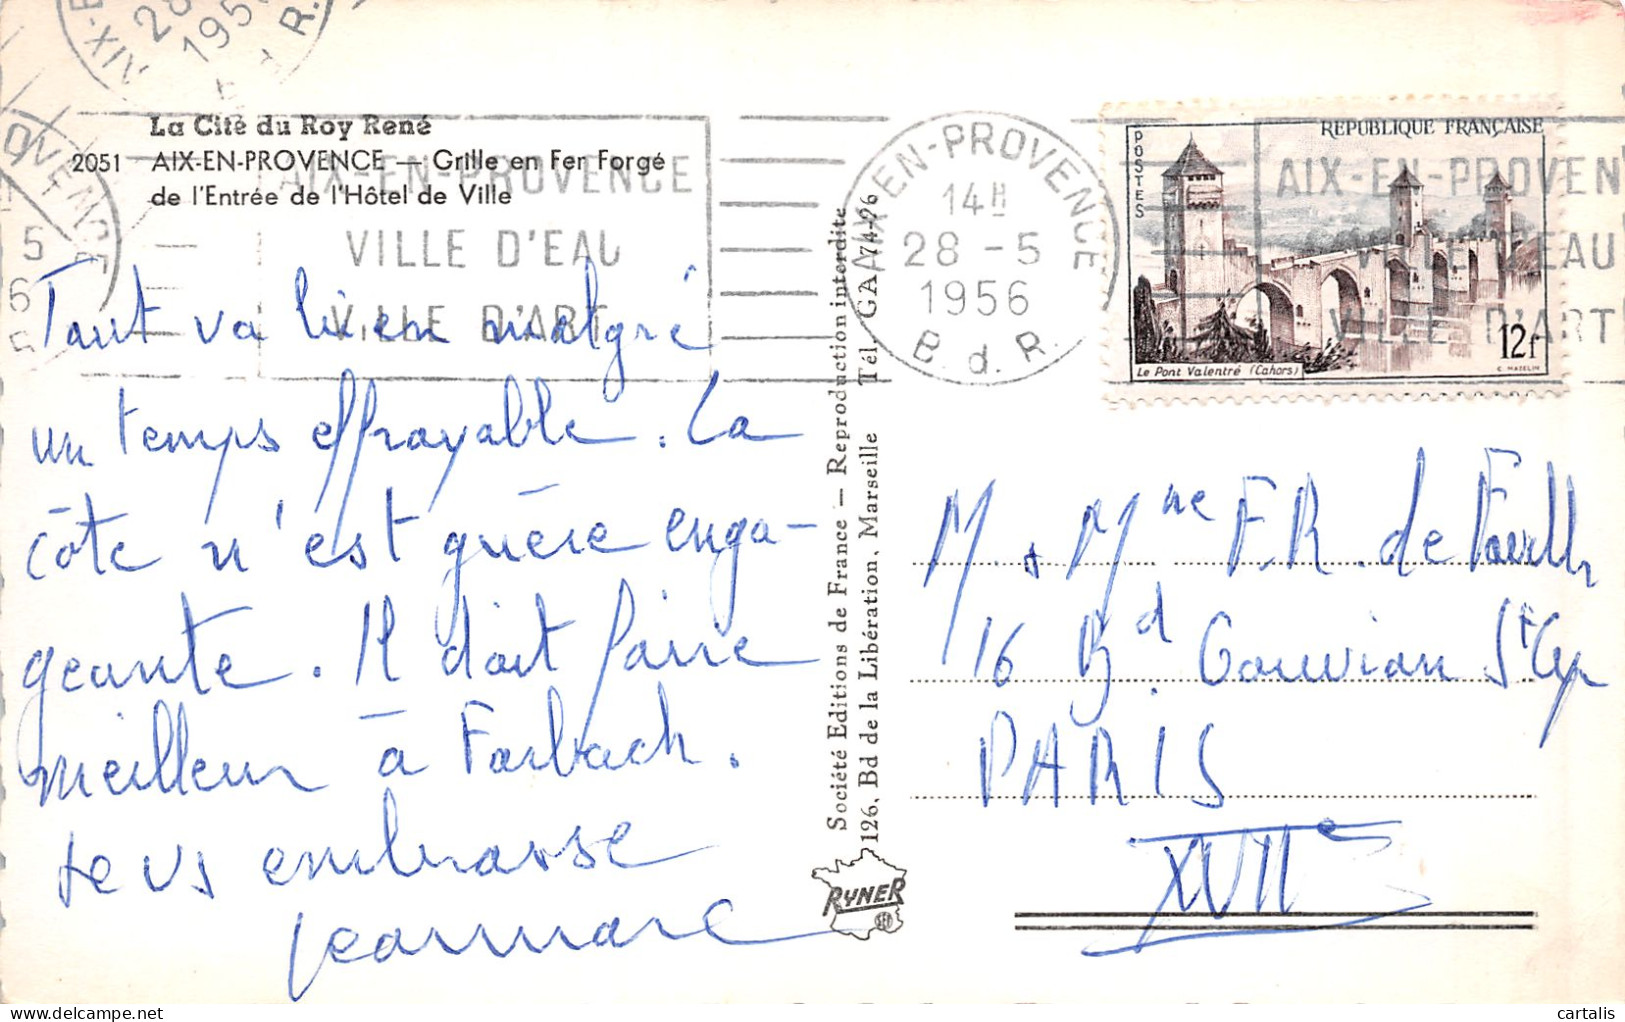 La Cité du Roy René
2051 AIX-EN-PROVENCE — Grille en Fer Forgé
de l'Entrée de l'Hôtel de Ville
AIX-EN-PROVENCE
VILLE D'EAU
VILLE D'ART
Tout va bien malgré
un temps effroyable. La
côte n'est guère enga-
geante. Il doit faire
meilleur à Forbach.
Je vs embrasse
Jeanmarc
Société Editions de France — Reproduction interdite
126, Bd de la Libération, Marseille Tél. GA 74-96
RYNER
SEF
AIX-EN-PROVENCE
14H
28 -5
1956
B. d. R.
REPUBLIQUE FRANÇAISE
POSTES
12f
Le Pont Valentré (Cahors)
C. MAZELIN
AIX-EN-PROVEN
VILLE D'EAU
VILLE D'ART
M. & Mme F.R. de
16 Bd. Gouvion St Cyr
PARIS
XVIIe
cartalis